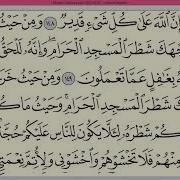 إِنَّ ٱللَّهَ عَلَىٰ كُلِّ شَىْءٍ قَدِيرٌ ١٤٨ وَمِنْ حَيْثُ
جْهَكَ شَطْرَ ٱلْمَسْجِدِ ٱلْحَرَامِ وَإِنَّهُۥ لَلْحَقُّ
بِغَٰفِلٍ عَمَّا تَعْمَلُونَ ١٤٩ وَمِنْ حَيْثُ خَرَ
شَطْرَ ٱلْمَسْجِدِ ٱلْحَرَامِ وَحَيْثُ مَا كُ
كُمْ شَطْرَهُۥ لِئَلَّا يَكُونَ لِلنَّاسِ عَلَيْكُمْ حُجَّةٌ
مِنْهُمْ فَلَا تَخْشَوْهُمْ وَٱخْشَوْنِى وَلِأُتِمَّ نِعْمَتِى